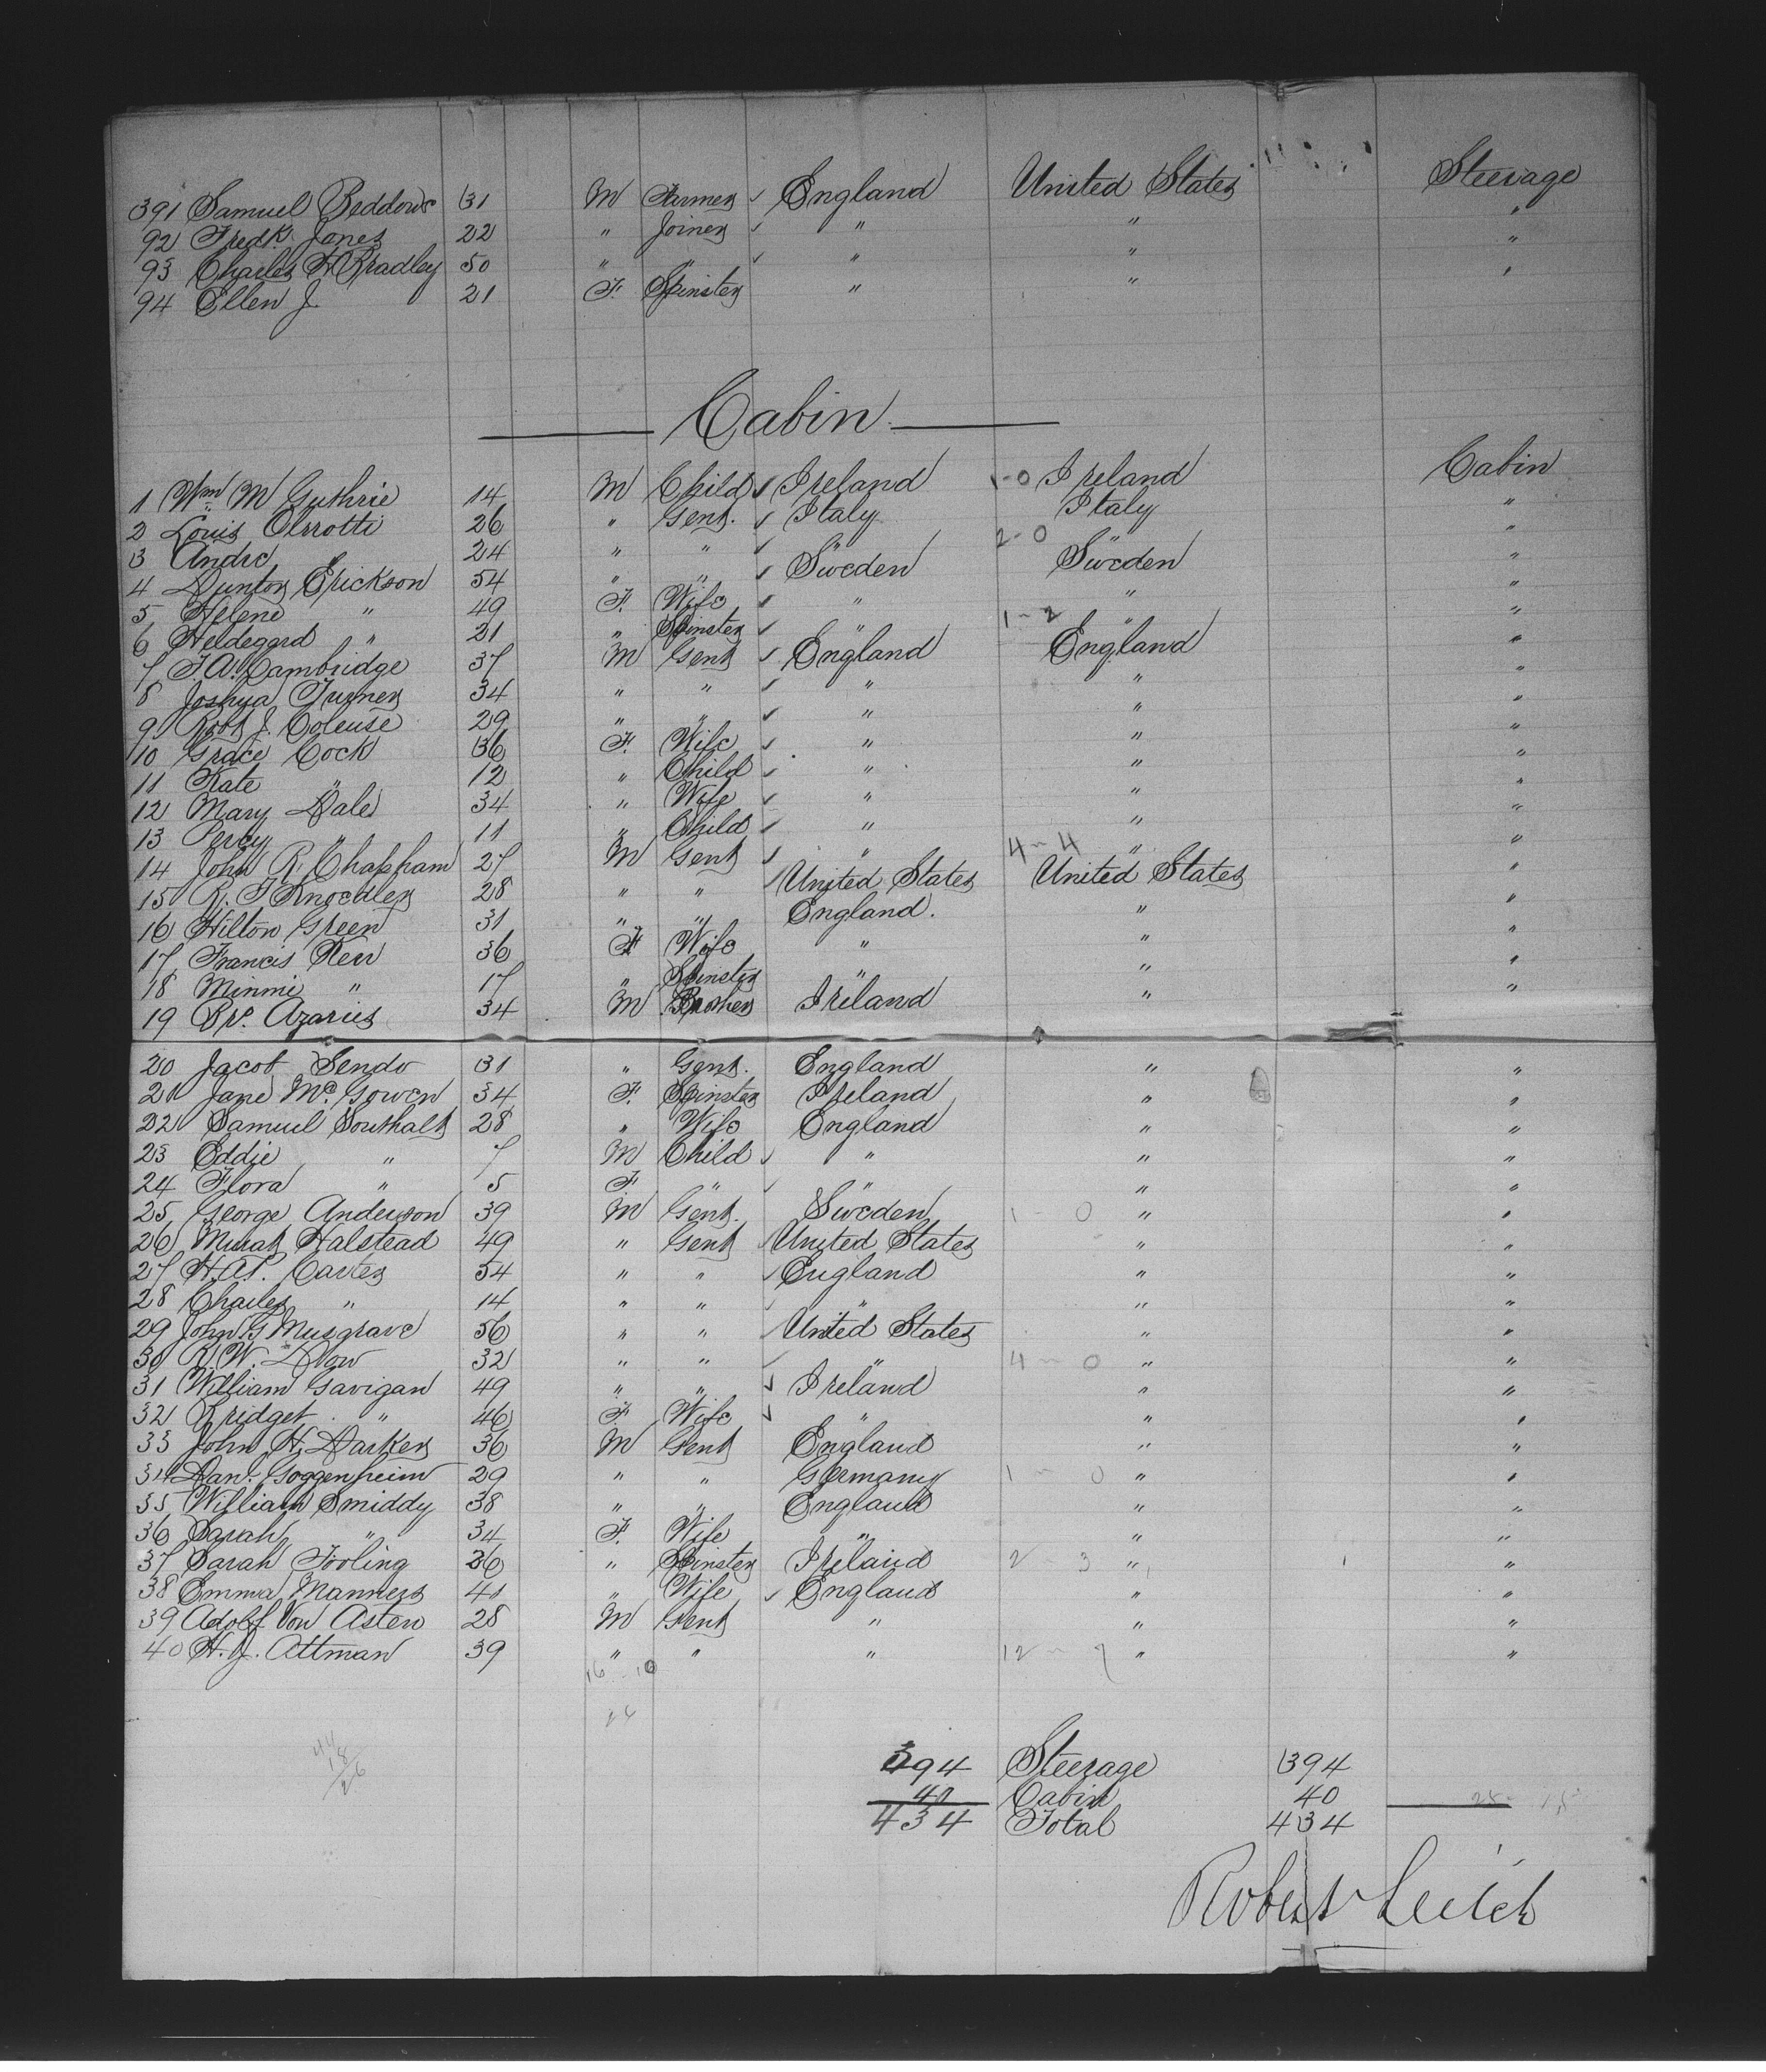 391 Samuel Beddows 31 M Farmer ✓ England United States Steerage
92 Fredk. Jones 22 " Joiner ✓ " " "
93 Charles H Bradley 50 " " ✓ " " "
94 Ellen J 21 F. Spinster " " "
Cabin
1 Wm M Guthrie 14 M Child ✓ Ireland 1-0 Ireland Cabin
2 Louis 26 " Gent. ✓ Italy Italy "
3 Andre 24 " " ✓ " 2-0 "
4 Erickson 54 " " ✓ Sweden Sweden "
5 Helene " 49 F. Wife ✓ " " "
6 Heldegard " 21 " Spinster ✓ " 1-2 " "
7 F.A. Cambridge 37 M Gent ✓ England England "
8 Joshua Turner 34 " " ✓ " " "
9 Robt J. Coleuse 29 " " ✓ " " "
10 Grace Cock 36 F. Wife ✓ " " "
11 Kate " 12 " Child ✓ " " "
12 Mary Dale 34 " Wife ✓ " " "
13 Percy " 11 " Child ✓ " " "
14 John R. Chapham 27 M Gent ✓ " 4-4 " "
15 R. F Knoedler 28 " " ✓ United States United States "
16 Hilton Green 31 " " England. " "
17 Francis Kerr 36 F Wife " " "
18 Minnie " 17 " Spinster " " "
19 Br. Azarius 34 M Brother Ireland " "
20 Jacob Sendo 31 " Gent. England " "
21 Jane McGowen 34 F. Spinster Ireland " "
22 Samuel Southall 28 " Wife England " "
23 Eddie " 7 M Child ✓ " " "
24 Flora " 5 F " ✓ " " "
25 George Anderson 39 M Gent. Sweden 1 - 0 " "
26 Murat Halstead 49 " Gent ✓ United States " "
27 H.A. Carter 54 " " ✓ England " "
28 Charles " 14 " " ✓ " " "
29 John G Musgrave 56 " " ✓ United States " "
30 R.W. Dow 32 " " ✓ " 4 - 0 " "
31 William Gavigan 49 " " ✓ Ireland " "
32 Bridget " 46 F Wife ✓ " " "
33 John H. Darker 36 M Gent England " "
34 Danl. Goggenheim 29 " " Germany 1 - 0 " "
35 William Smiddy 38 " " England " "
36 Sarah " 34 F. Wife " " "
37 Sarah Fooling 26 " Spinster Ireland 2 3 " "
38 Emma Manners 40 " Wife ✓ England " "
39 Adolf Von Asten 28 M Gent " " "
40 H. J. Attman 39 " " " 12 - 7 " "
16 - 10
394 Steerage 394
40 Cabin 40
434 Total 434
Robert Leitch